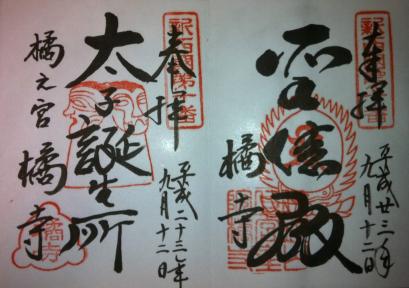 奉拝
平成廿三年
九月十二日
橘寺
新西国第十番
奉拝
平成二十三年
九月十二日
太子誕生所
橘之宮
橘寺
新西国第十番
橘寺